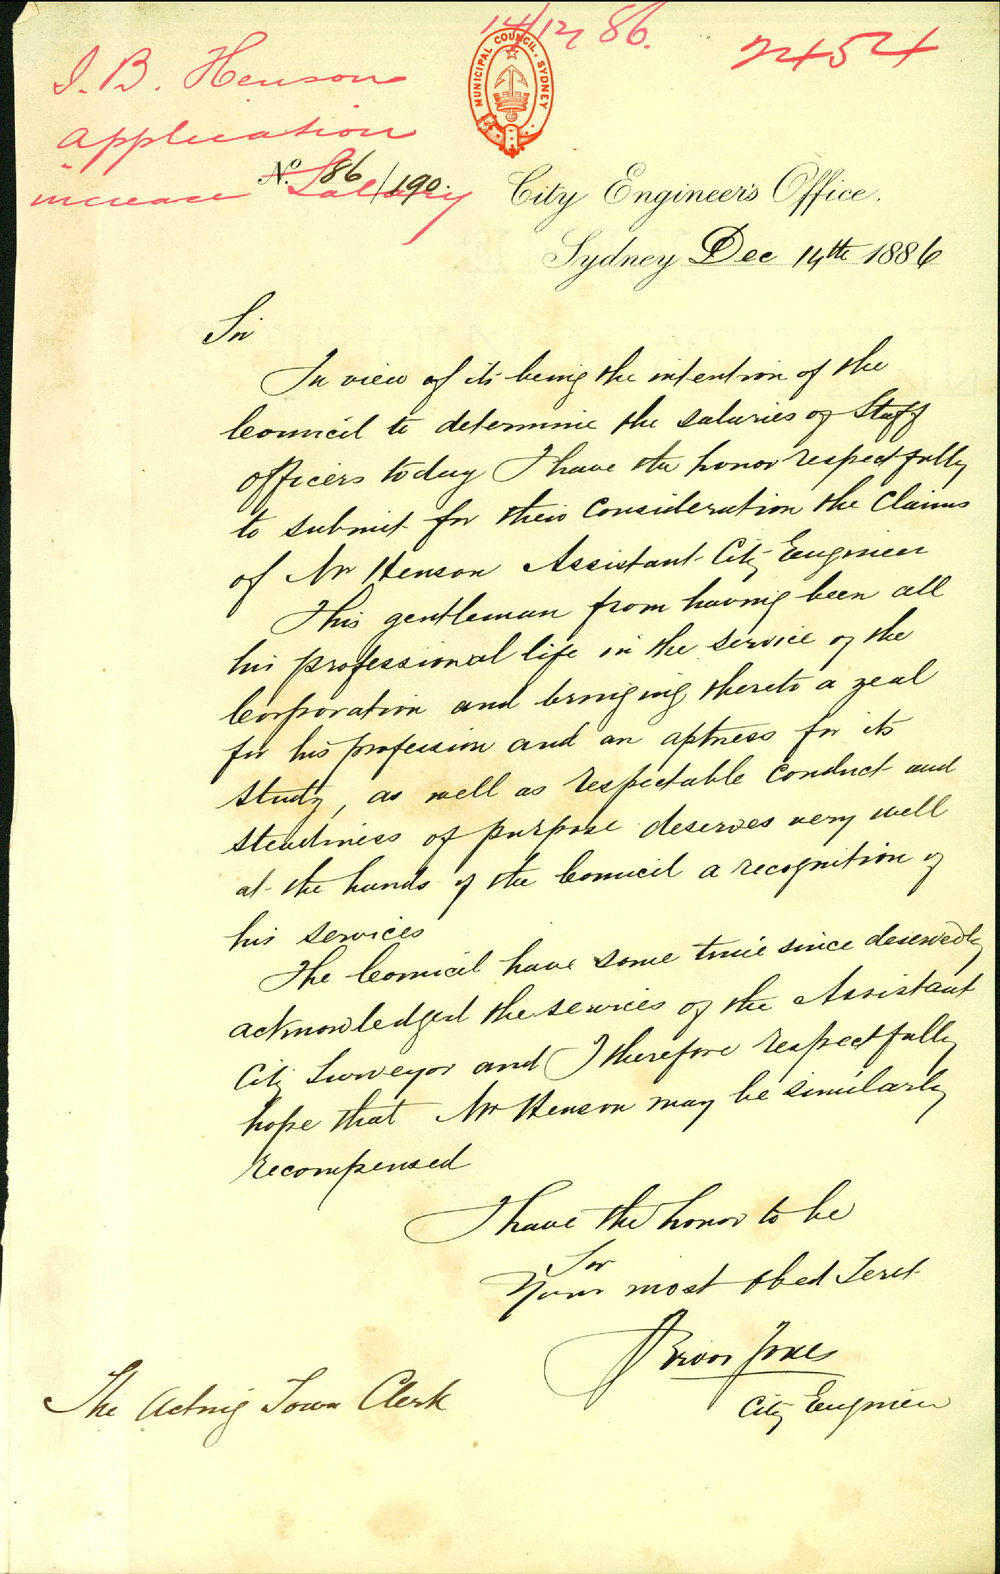 14/12/86.
2454
J. B. Henson
application
increase Salary
MUNICIPAL COUNCIL. SYDNEY
No. 86/190.
City Engineer's Office.
Sydney Dec 14th 1886
Sir
In view of its being the intention of the
Council to determine the salaries of Staff
officers today I have the honor respectfully
to submit for their consideration the claims
of Mr Henson Assistant City Engineer
This gentleman from having been all
his professional life in the service of the
Corporation and bringing thereto a zeal
for his profession and an aptness for its
study, as well as respectable conduct and
steadiness of purpose deserves very well
at the hands of the Council a recognition of
his services
The Council have some time since deservedly
acknowledged the services of the Assistant
City Surveyor and I therefore respectfully
hope that Mr Henson may be similarly
recompensed
I have the honor to be
Sir
Your most obed Servt
Trevor Jones
City Engineer
The Acting Town Clerk